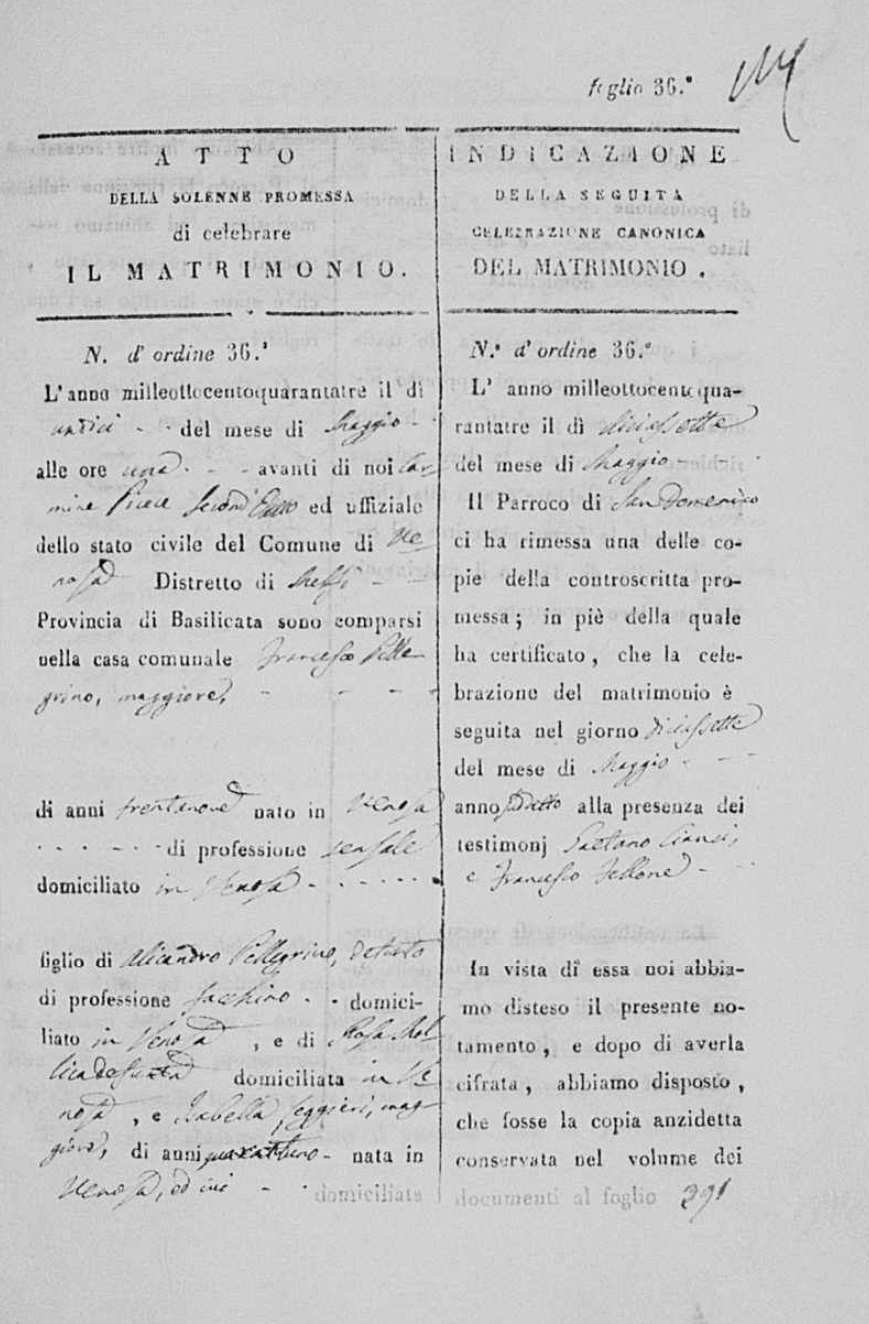 foglio 36.°
ATTO
DELLA SOLENNE PROMESSA
di celebrare
IL MATRIMONIO.
N. d' ordine 36.°
L'anno milleottocentoquarantatre il dì
undici - - del mese di Maggio -
alle ore una - - - avanti di noi Car-
mine Second' Eletto ed uffiziale
dello stato civile del Comune di Ve-
nosa Distretto di Melfi - -
Provincia di Basilicata sono comparsi
nella casa comunale Francesco Pelle-
grino, maggiore, - - - -
di anni trentanove nato in Venosa
- - - - - di professione sensale
domiciliato in Venosa - - - - - -
figlio di Pellegrino, defunto
di professione facchino - - domici-
liato in Venosa , e di Rosa Mol-
lica defunta domiciliata in Ve-
nosa , e Isabella Leggieri, mag-
giore, di anni quarantuno - nata in
Venosa, ed ivi - - domiciliata
INDICAZIONE
DELLA SEGUITA
CELEBRAZIONE CANONICA
DEL MATRIMONIO .
N.° d' ordine 36.°
L' anno milleottocentoqua-
rantatre il dì diciassette
del mese di Maggio - - -
Il Parroco di San Domenico
ci ha rimessa una delle co-
pie della controscritta pro-
messa ; in piè della quale
ha certificato , che la cele-
brazione del matrimonio è
seguita nel giorno diciassette
del mese di Maggio - - -
anno suddetto alla presenza dei
testimonj Gaetano Cianci,
e Francesco Tellone - -
In vista di essa noi abbia-
mo disteso il presente no-
tamento , e dopo di averla
cifrata , abbiamo disposto ,
che fosse la copia anzidetta
conservata nel volume dei
documenti al foglio 391